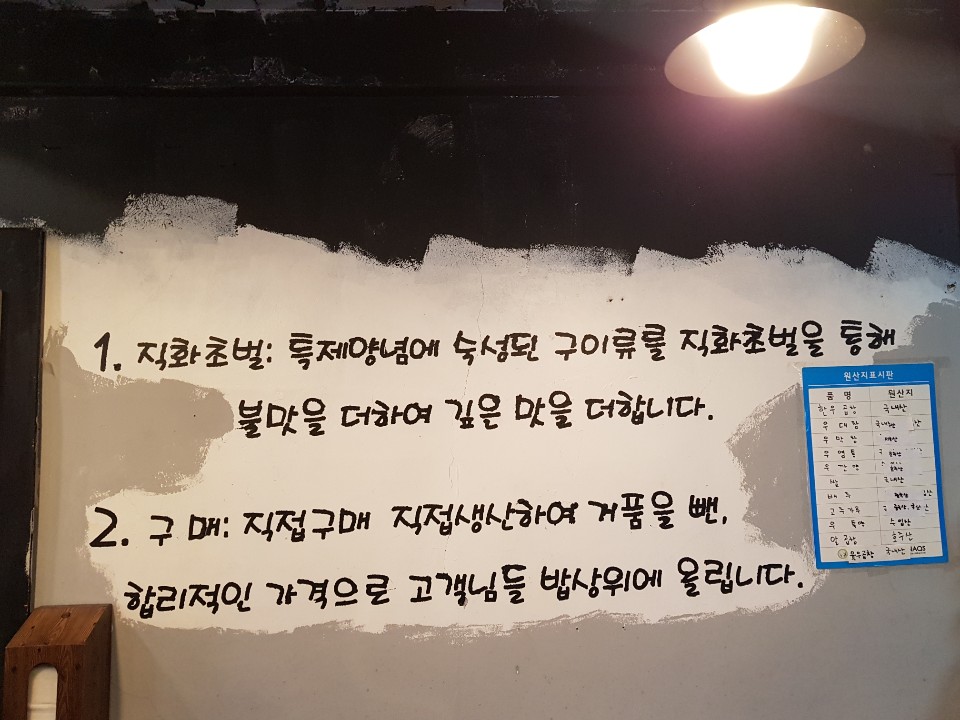 1. 직화초벌: 특제양념에 숙성된 구이류를 직화초벌을 통해
불맛을 더하여 깊은 맛을 더합니다.
2. 구매: 직접구매 직접생산하여 거품을 뺀,
합리적인 가격으로 고객님들 밥상위에 올립니다.
원산지표시판
품 명 원산지
한우 곱창 국내산
우 대 창
우 막 창
우 염 통
국내산
배 추
고추가루
수입산
알 곱창 호주산
국내산